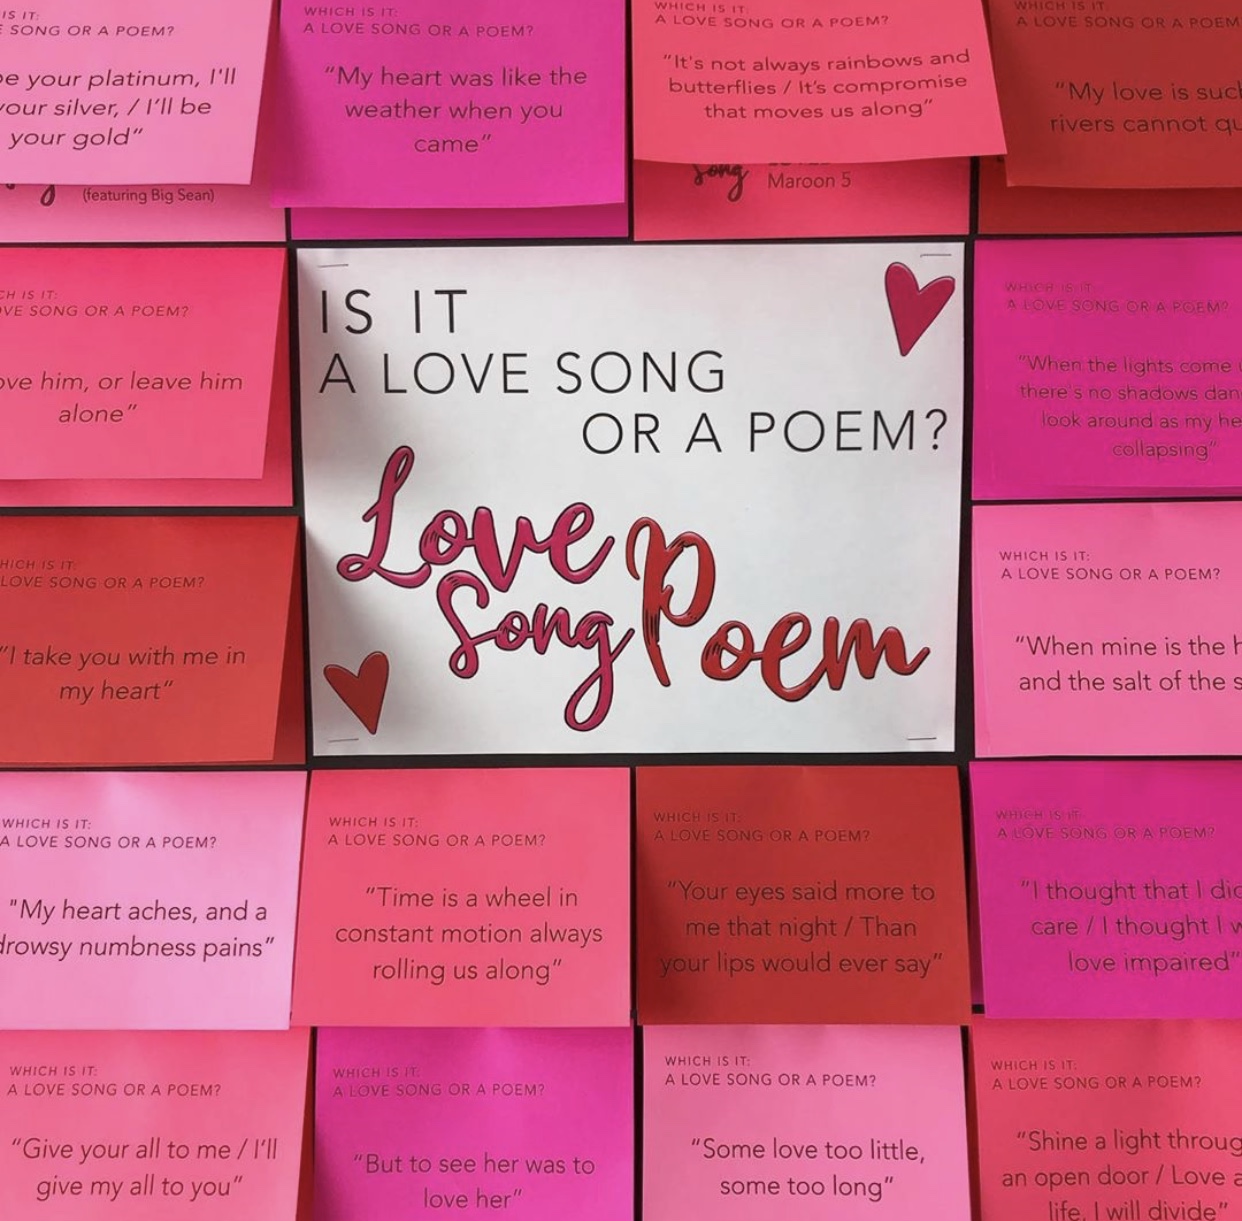 IS IT:
SONG OR A POEM?
be your platinum, I'll
your silver, / I'll be
your gold"
(featuring Big Sean)
WHICH IS IT:
A LOVE SONG OR A POEM?
"My heart was like the
weather when you
came"
WHICH IS IT:
A LOVE SONG OR A POEM?
"It's not always rainbows and
butterflies / It's compromise
that moves us along"
Song
Maroon 5
WHICH IS IT:
A LOVE SONG OR A POEM
"My love is such
rivers cannot qu
CH IS IT:
OVE SONG OR A POEM?
ove him, or leave him
alone"
IS IT
A LOVE SONG
OR A POEM?
Love
Song
Poem
WHICH IS IT:
A LOVE SONG OR A POEM?
"When the lights come
there's no shadows dan
look around as my he
collapsing"
HICH IS IT:
LOVE SONG OR A POEM?
"I take you with me in
my heart"
WHICH IS IT:
A LOVE SONG OR A POEM?
"When mine is the h
and the salt of the s
WHICH IS IT:
A LOVE SONG OR A POEM?
"My heart aches, and a
drowsy numbness pains"
WHICH IS IT:
A LOVE SONG OR A POEM?
"Time is a wheel in
constant motion always
rolling us along"
WHICH IS IT:
A LOVE SONG OR A POEM?
"Your eyes said more to
me that night / Than
your lips would ever say"
WHICH IS IT:
A LOVE SONG OR A POEM?
"I thought that I did
care / I thought I w
love impaired"
WHICH IS IT:
A LOVE SONG OR A POEM?
"Give your all to me / I'll
give my all to you"
WHICH IS IT:
A LOVE SONG OR A POEM?
"But to see her was to
love her"
WHICH IS IT:
A LOVE SONG OR A POEM?
"Some love too little,
some too long"
WHICH IS IT:
A LOVE SONG OR A POEM?
"Shine a light throug
an open door / Love a
life, I will divide"